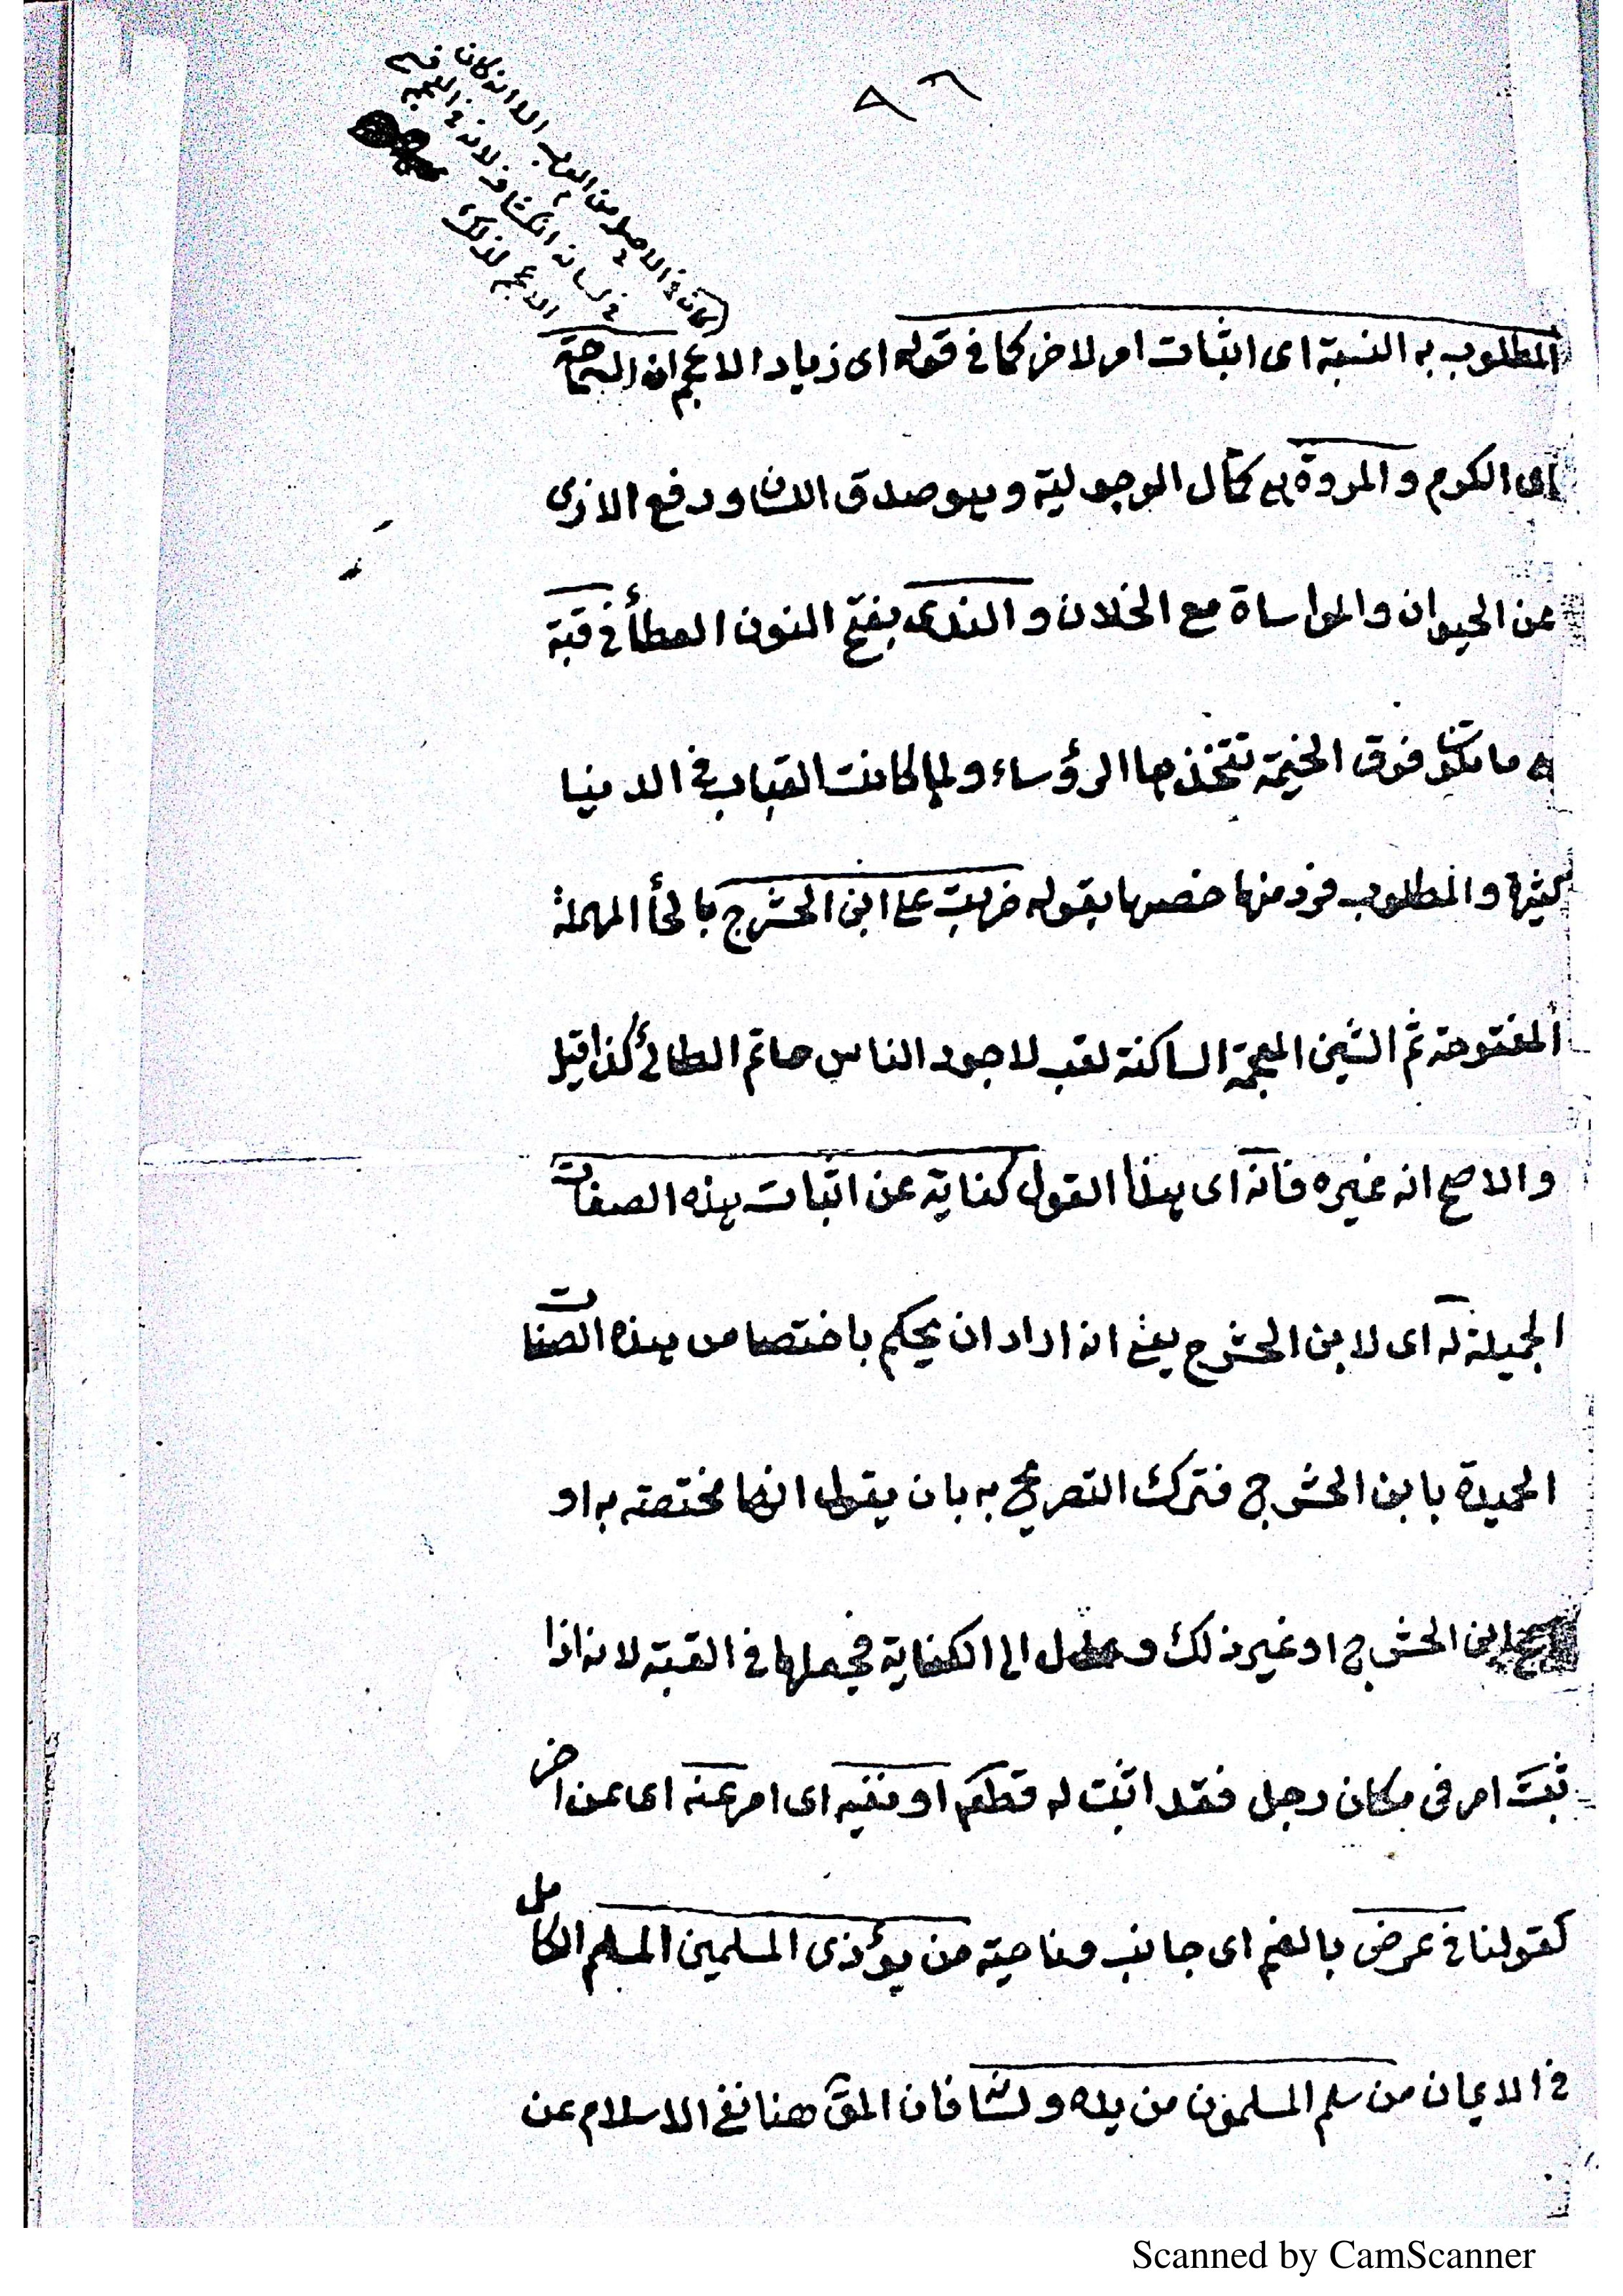 ٨٦
كان في الاصل من العرب الا انه كان
في لسانه انكشاف لانه في العجمة قسم
الاعجم لذلك
المطلوب به النسبة اى اثبات امر لاخر كما في قوله اى زياد الاعجم ان السماحة
اى الكرم والمروة هى كمال الرجولية وهو صدق اللسان ودفع الاذى
عن الحيوان والمواساة مع الخلان والندى بفتح النون العطأ في قبة
هى ما تكون فوق الخيمة تتخذها الرؤساء ولما كانت القباب في الدنيا
كثيرة والمطلوب فرد منها خصها بقوله ضربت على ابن الحشرج بالحأ المهملة
المفتوحة ثم الشين المعجمة الساكنة لقب لاجود الناس حاتم الطائي كذا قيل
والاصح انه غيره فانه اى هذا القول كناية عن اثبات هذه الصفات
الجميلة له اى لابن الحشرج يعني انه اراد ان يحكم باختصاص هذه الصفات
الحميدة بابن الحشرج فترك التصريح به بان يقول انها مختصة به او
ابن الحشرج او غير ذلك وعدل الى الكناية فجعلها في القبة لانه اذا
ثبت امر في مكان رجل فقد اثبت له قطعا او نفيه اى امر عنه اى عن اخر
كقولنا في عرض بالضم اى جانب وناحية من يؤذى المسلمين المسلم الكامل
في الايمان من سلم المسلمون من يده ولسانه فان المق هنا نفي الاسلام عن
Scanned by CamScanner